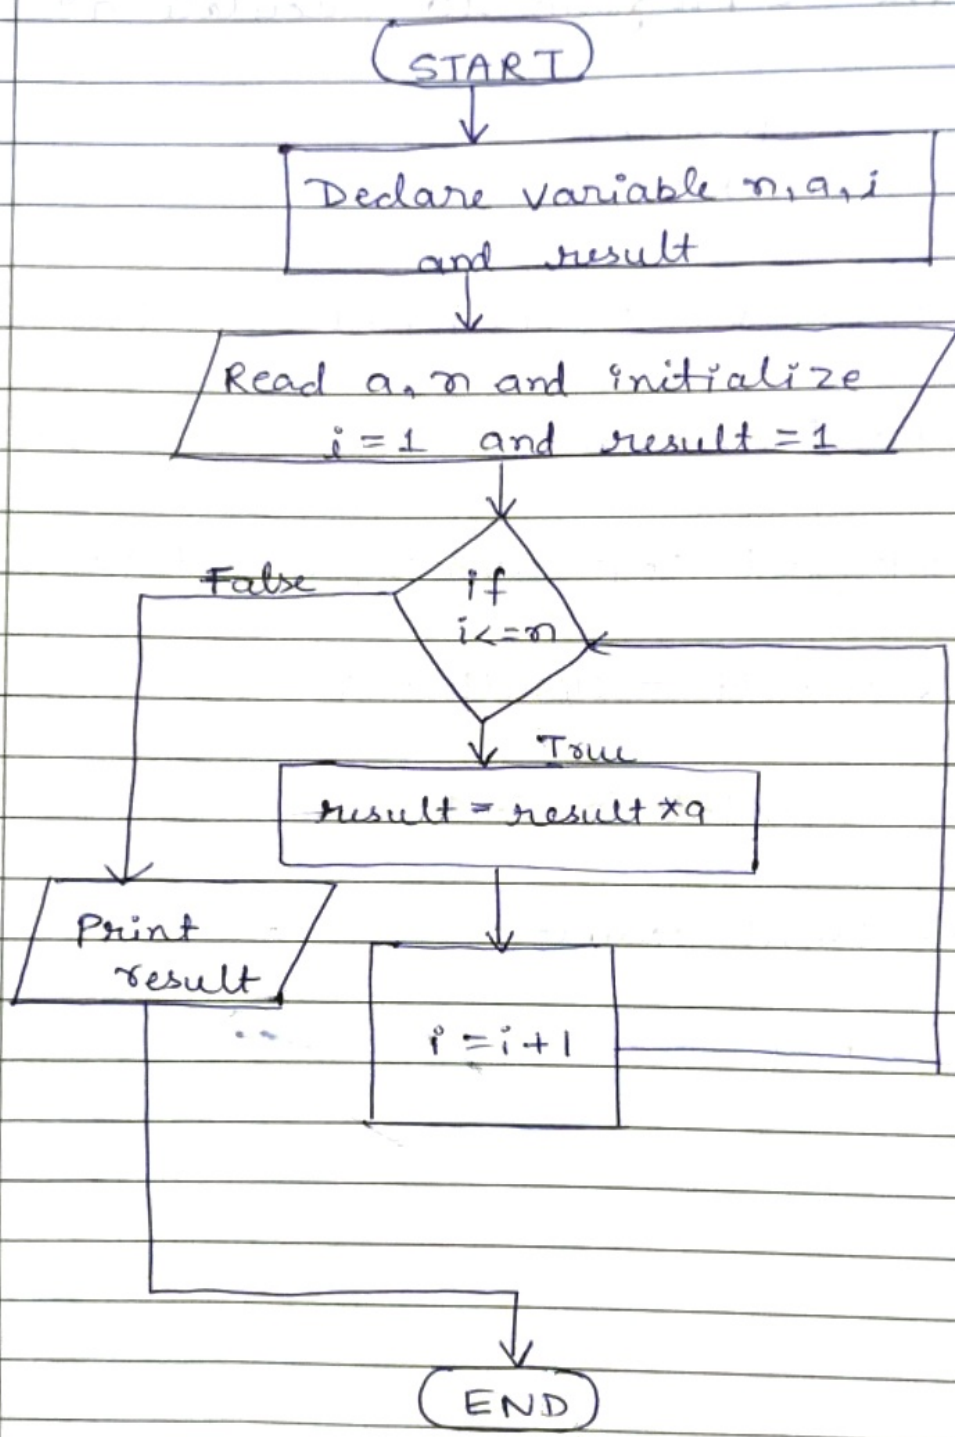 START
Declare variable n, a, i
and result
Read a, n and initialize
i = 1 and result = 1
False
if
i<=n
True
result = result *a
Print
result
i = i + 1
END